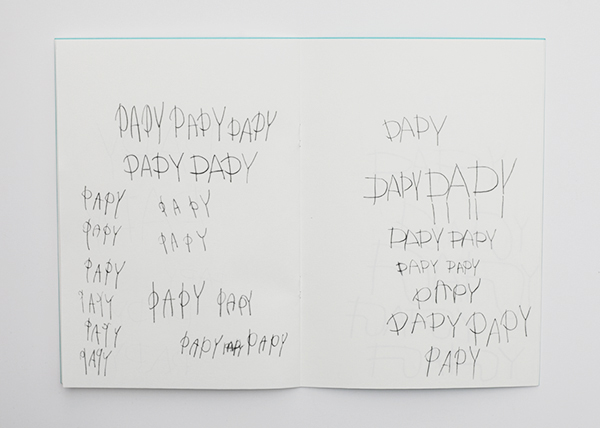 PAPY PAPY PAPY
PAPY PAPY
PAPY
PAPY
PAPY
PAPY
PAPY
PAPY
PAPY
PAPY
PAPY PAPY
PAPY PAPY
PAPY
PAPY PAPY
PAPY PAPY
PAPY PAPY
PAPY
PAPY PAPY
PAPY